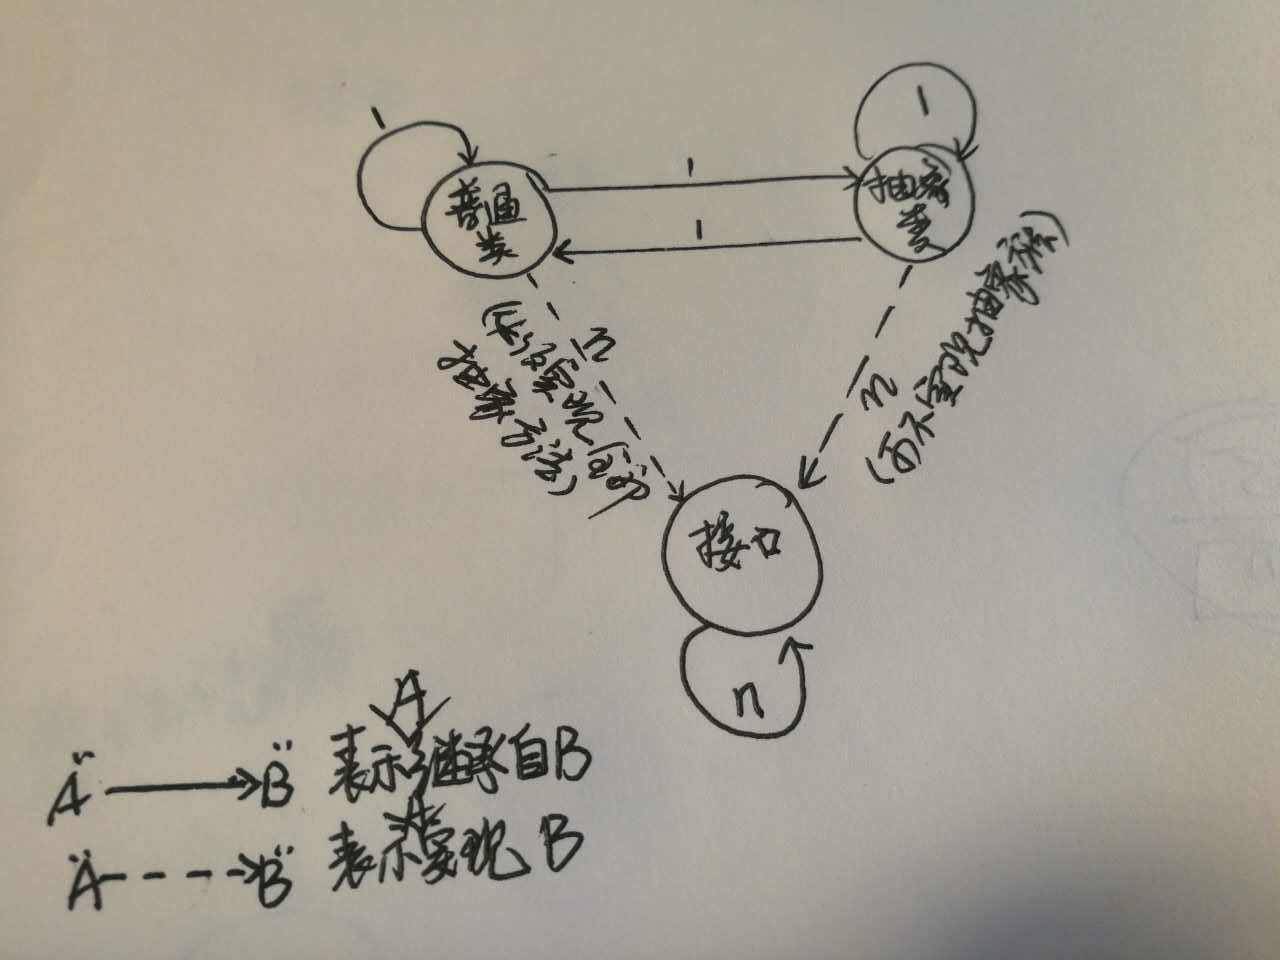 1
1
普通
类
1
1
抽象
类
n
(必须实现所有
抽象方法)
n
(可不实现抽象方法)
接口
n
"A" → "B" 表示A继承自B
"A" --→ "B" 表示A实现B